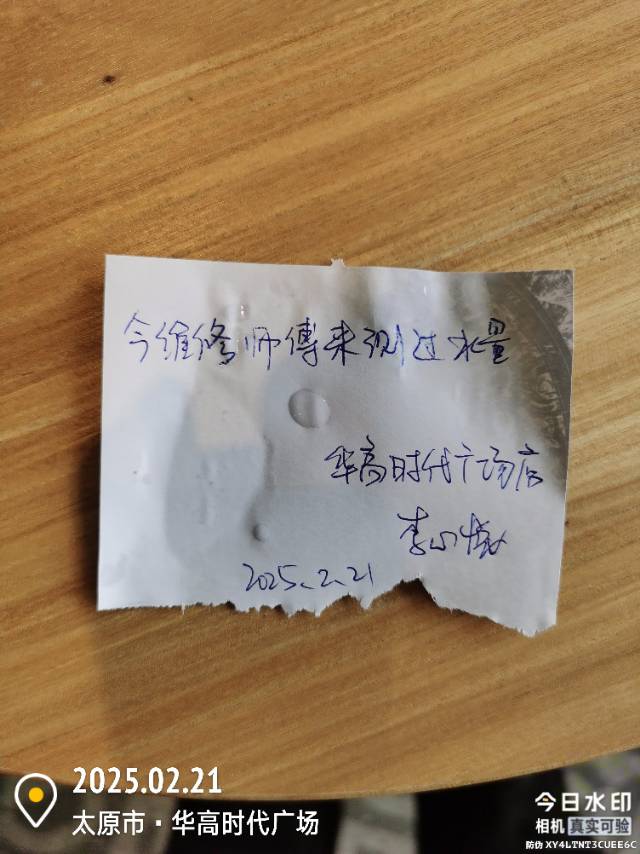 今维修师傅来测过水量
华高时代广场店
李小
2025.2.21
2025.02.21
太原市·华高时代广场
今日水印
相机 真实可验
防伪 XY4LTNT3CUEE6C